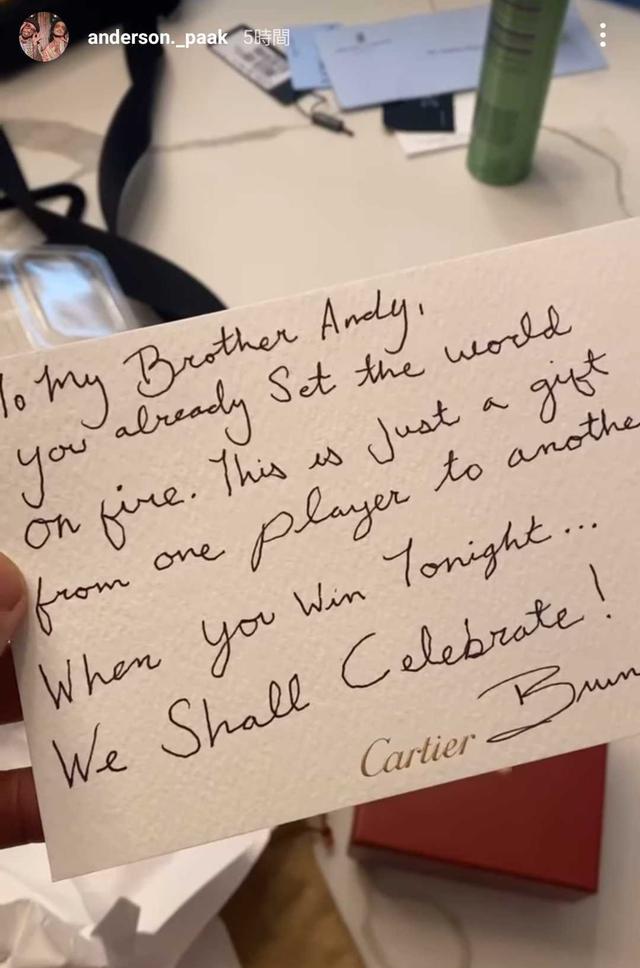 anderson._paak 5時間
To My Brother Andy,
you already Set the world
on fire. This is Just a gift
from one player to anothe
When you Win Tonight...
We Shall Celebrate!
Cartier Brun